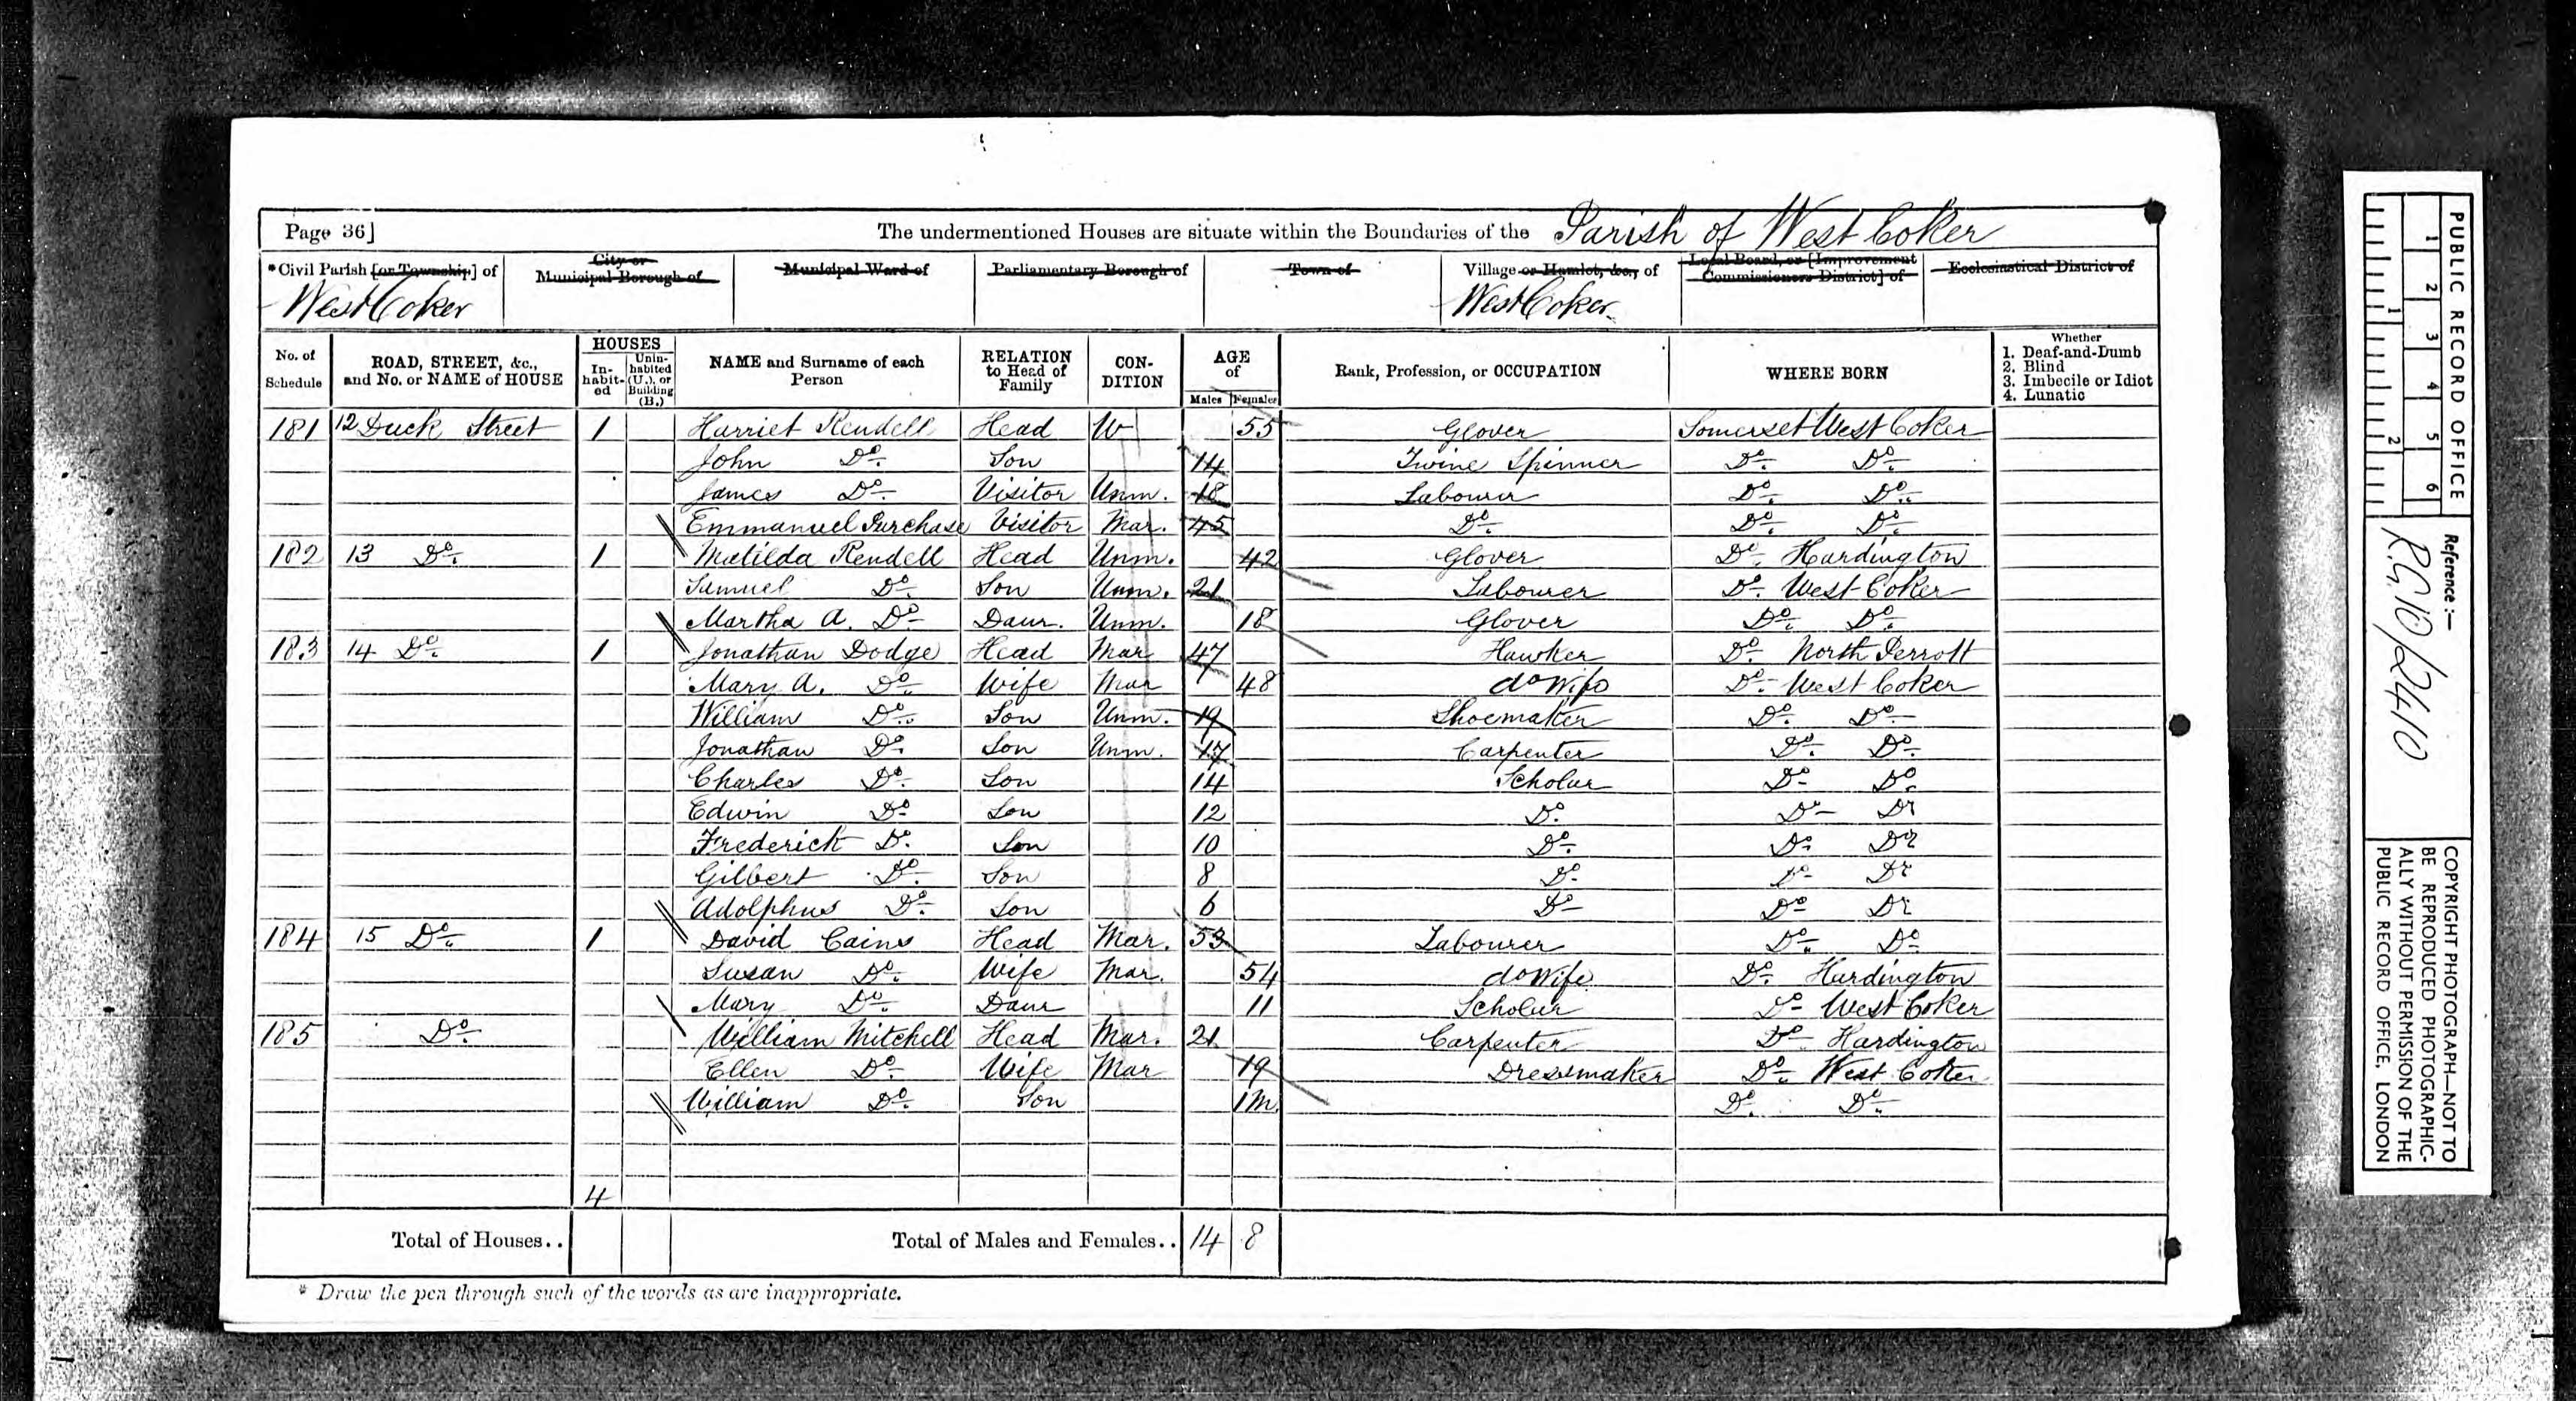 Page 36] The undermentioned Houses are situate within the Boundaries of the Parish of West Coker
*Civil Parish [or Township] of West Coker
City or Municipal Borough of
Municipal Ward of
Parliamentary Borough of
Town of
Village or Hamlet, &c., of West Coker
Local Board, or [Improvement Commissioners District] of
Ecclesiastical District of
No. of Schedule
ROAD, STREET, &c., and No. or NAME of HOUSE
HOUSES
In-habit-ed
Unin-habited (U.), or Building (B.)
NAME and Surname of each Person
RELATION to Head of Family
CON-DITION
AGE of
Males Females
Rank, Profession, or OCCUPATION
WHERE BORN
Whether
1. Deaf-and-Dumb
2. Blind
3. Imbecile or Idiot
4. Lunatic
181 12 Duck Street 1 Harriet Rendell Head W 55 Glover Somerset West Coker
John Do. Son 14 Twine Spinner Do. Do.
James Do. Visitor Unm. 18 Labourer Do. Do.
Emmanuel Purchase Visitor Mar. 45 Do. Do. Do.
182 13 Do. 1 Matilda Rendell Head Unm. 42 Glover Do. Hardington
Samuel Do. Son Unm. 21 Labourer Do. West Coker
Martha A. Do. Daur. Unm. 18 Glover Do. Do.
183 14 Do. 1 Jonathan Dodge Head Mar 47 Hawker Do. North Perrott
Mary A. Do. Wife Mar 48 do Wife Do. West Coker
William Do. Son Unm. 19 Shoemaker Do. Do.
Jonathan Do. Son Unm. 17 Carpenter Do. Do.
Charles Do. Son 14 Scholar Do. Do.
Edwin Do. Son 12 Do. Do. Do.
Frederick Do. Son 10 Do. Do. Do.
Gilbert Do. Son 8 Do. Do. Do.
Adolphus Do. Son 6 Do. Do. Do.
184 15 Do. 1 David Cains Head Mar. 53 Labourer Do. Do.
Susan Do. Wife Mar. 54 do Wife Do. Hardington
Mary Do. Daur 11 Scholar Do. West Coker
185 Do. William Mitchell Head Mar. 21 Carpenter Do. Hardington
Ellen Do. Wife Mar 19 Dressmaker Do. West Coker
William Do. Son 1m. Do. Do.
4
Total of Houses.. Total of Males and Females.. 14 8
* Draw the pen through such of the words as are inappropriate.
PUBLIC RECORD OFFICE
1 2 3 4 5 6
1 2
Reference:—
RG 10/2410
COPYRIGHT PHOTOGRAPH—NOT TO
BE REPRODUCED PHOTOGRAPHIC-
ALLY WITHOUT PERMISSION OF THE
PUBLIC RECORD OFFICE, LONDON